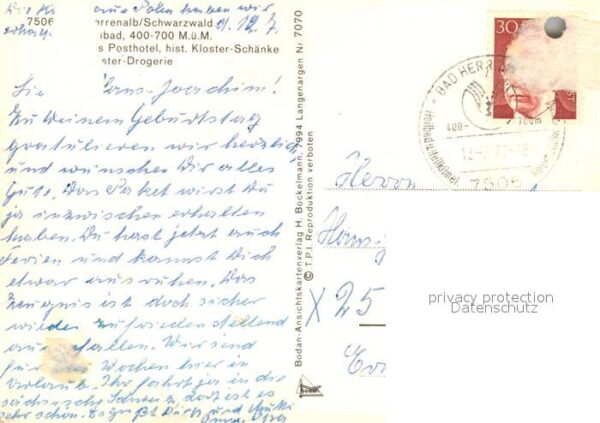 aus Polen haben wir
7506
errenalb/Schwarzwald
ibad, 400-700 M.ü.M.
s Posthotel, hist. Kloster-Schänke
ster-Drogerie
Hans-Joachim!
Zu Deinem Geburtstag
gratulieren wir herzlich
und wünschen Dir alles
Gute. Das Paket wirst Du
ja inzwischen erhalten
haben. Du hast jetzt auch
Ferien und kannst Dich
etwas ausruhen. Das
Zeugnis ist doch sicher
wieder zufriedenstellend
ausgefallen. Wir sind
für Wochen hier in
Urlaub. Ihr fahrt ja in die
sächsische Schweiz, dort ist es
sehr schön. Es grüßt Dich und Mutti
Bodan-Ansichtskartenverlag H. Bockelmann, 7994 Langenargen Nr. 7070
© T.P.I. Reproduktion verboten
bodan
30
BAD HERR
400-
700m
7506
Herrn
Hans-J
X 25
privacy protection
Datenschutz